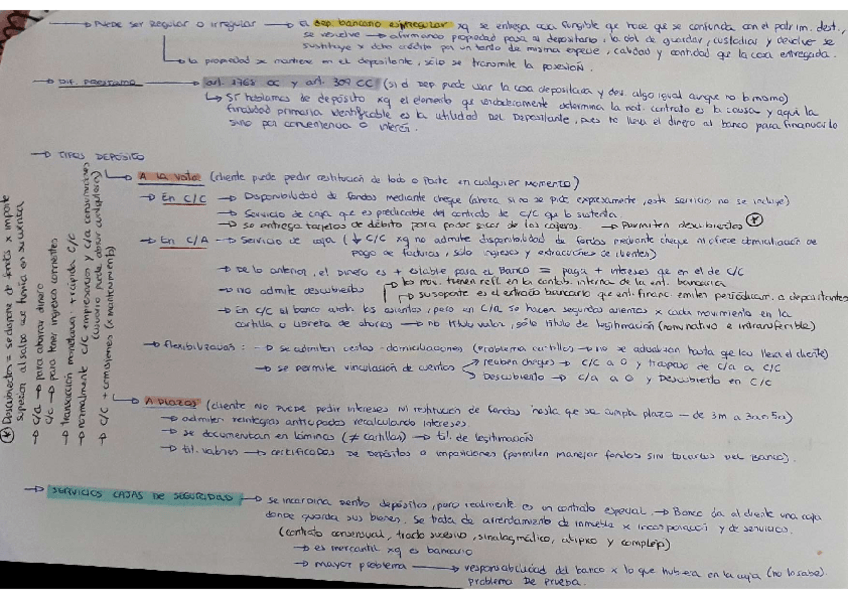 → PUEDE SER Regular o irregular → El dep. bancario es irregular xq se entrega cosa fungible que hace que se confunda con el patrim. dest.,
se resuelve → afirmando propiedad pasa al depositario, la obl de guardar, custodiar y devolver se
sustituye x dcho crédito por un tanto de misma especie, calidad y cantidad que la cosa entregada.
↳ la propiedad se mantiene en el depositante, sólo se transmite la posesión.
→ DIF. PRÉSTAMO → art. 1768 CC y art. 309 CC (si el dep puede usar la cosa depositada y dev. algo igual aunque no lo mismo)
↳ Si hablamos de depósito xq el elemento que verdaderamente determina la nat. contrato es la causa y aquí la
finalidad primaria identificable es la utilidad DEL Depositante, pues te lleva el dinero al banco para financiarlo
sino por conveniencia o interés.
→ TIPOS DEPÓSITO
↳ A LA VISTA (cliente puede pedir restitución de todo o parte en cualquier momento)
→ En C/C → Disponibilidad de fondos mediante cheque (ahora si no se pide expresamente, este servicio no se incluye)
→ Servicio de caja que es predicable del contrato de C/C que lo sustenta
→ se entrega tarjetas de débito para poder sacar de los cajeros → Permiten descubiertos *
→ En C/A → Servicio de caja (↓ C/C xq no admite disponibilidad de fondos mediante cheque ni ofrece domiciliación de
pago de facturas, sólo ingresos y extracciones de clientes)
→ De lo anterior, el dinero es + estable para el Banco = paga + intereses que en el de C/C
→ no admite descubiertos → los mov. tienen refl. en la contab. interna de la ent. bancaria
→ su soporte es el extracto bancario que ent. financ emiten periódicam. a depositantes
→ En C/C el banco los asientos, pero en C/A se hacen segundos asientos x cada movimiento en la
cartilla o libreta de ahorros → no título valor, sólo título de legitimación (nominativo e intransferible)
→ Flexibilizadas: → se admiten ciertas domiciliaciones (Problema cartillas → no se actualizan hasta que las lleva el cliente)
→ se permite vinculación de cuentas → cheques → C/C a 0 y traspaso de C/A a C/C
→ Descubierto → C/A a 0 y Descubierto en C/C
↳ A PLAZOS (cliente NO PUEDE pedir intereses ni restitución de fondos hasta que se cumpla plazo → de 3m a 3a o 5a)
→ admiten reintegros anticipados recalculando intereses.
→ se documentan en láminas (≠ cartillas) → tít. de legitimación
→ tít. valores → certificados de depósitos o imposiciones (permiten manejar fondos sin tocarlos del Banco).
→ SERVICIOS CAJAS DE SEGURIDAD → se incardina dentro depósitos, pero realmente es un contrato especial. → Banco da al cliente una caja
donde guarda sus bienes. Se trata de arrendamiento de inmueble x incorporación y de servicios.
(contrato consensual, tracto sucesivo, sinalagmático, atípico y complejo)
→ es mercantil xq es bancario
→ mayor problema → responsabilidad del banco x lo que hubiera en la caja (no lo sabe).
problema DE prueba.
* Descubiertos = se dispone de fondos x importe
superior al saldo que tenía en su cuenta
→ C/A → para ahorrar dinero
C/C → para tener ingresos corrientes
→ transacción monetaria: + rápida C/C
→ normalmente C/C empresarios y C/A consumidores
(usuario puede abrir cualquiera)
→ C/C + comisiones (x mantenimiento)